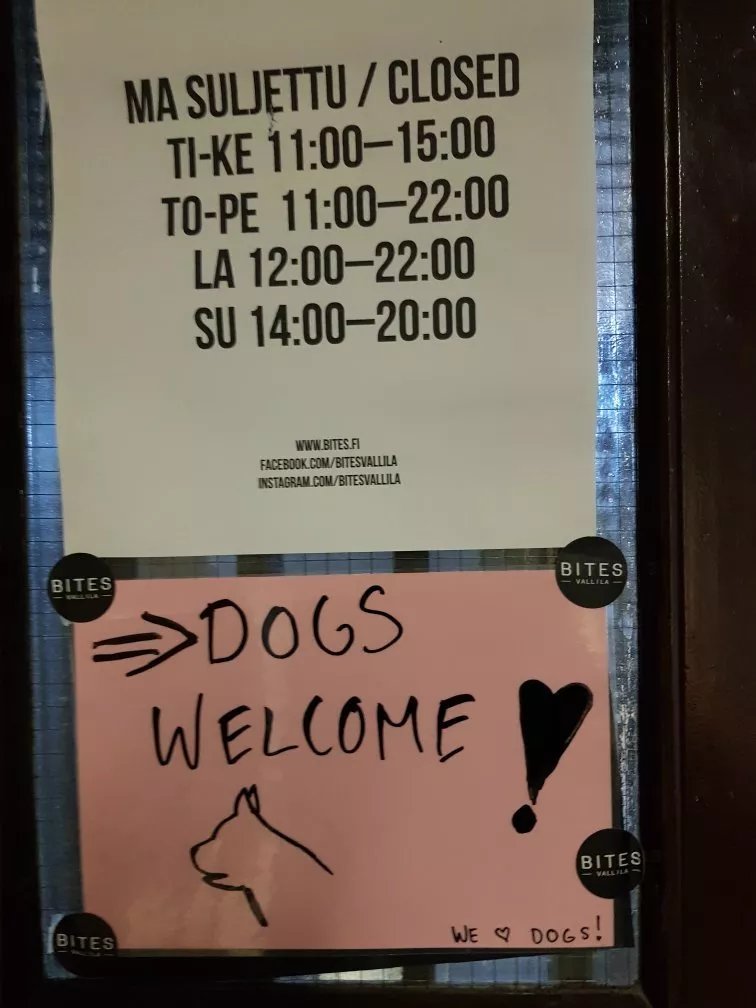 MA SULJETTU / CLOSED
TI-KE 11:00–15:00
TO-PE 11:00–22:00
LA 12:00–22:00
SU 14:00–20:00
WWW.BITES.FI
FACEBOOK.COM/BITESVALLILA
INSTAGRAM.COM/BITESVALLILA
BITES
VALLILA
BITES
VALLILA
⇒DOGS
WELCOME !
BITES
VALLILA
BITES
WE ♡ DOGS!